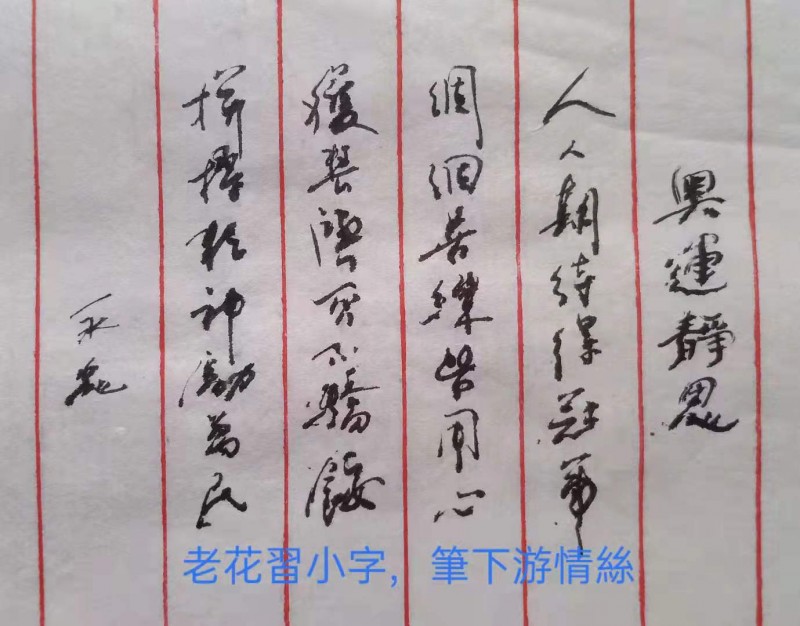 奧運靜思
人人期待得冠軍
個個苦練皆用心
獲獎不驕餒
拼搏精神勵萬民
永
老花習小字，筆下游情絲